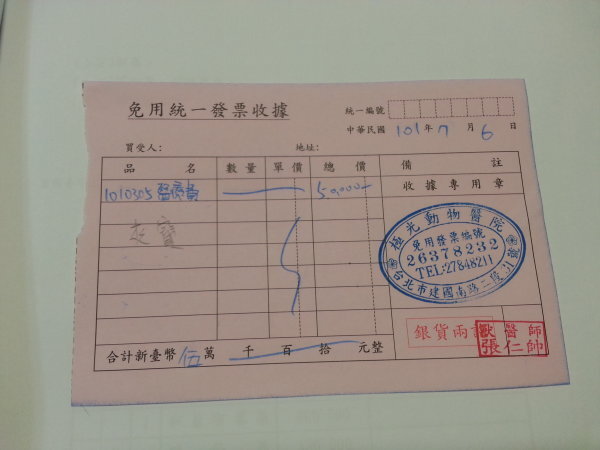 免用統一發票收據
統一編號
中華民國 101 年 7 月 6 日
買受人: 地址:
品名 數量 單價 總價 備註
1010305 醫療費 50,000
收據專用章
極光動物醫院
免用發票編號
26378232
TEL:27848211
台北市建國南路二段31號
銀貨兩訖
獸醫師
張仁帥
合計新臺幣 伍 萬 千 百 拾 元整